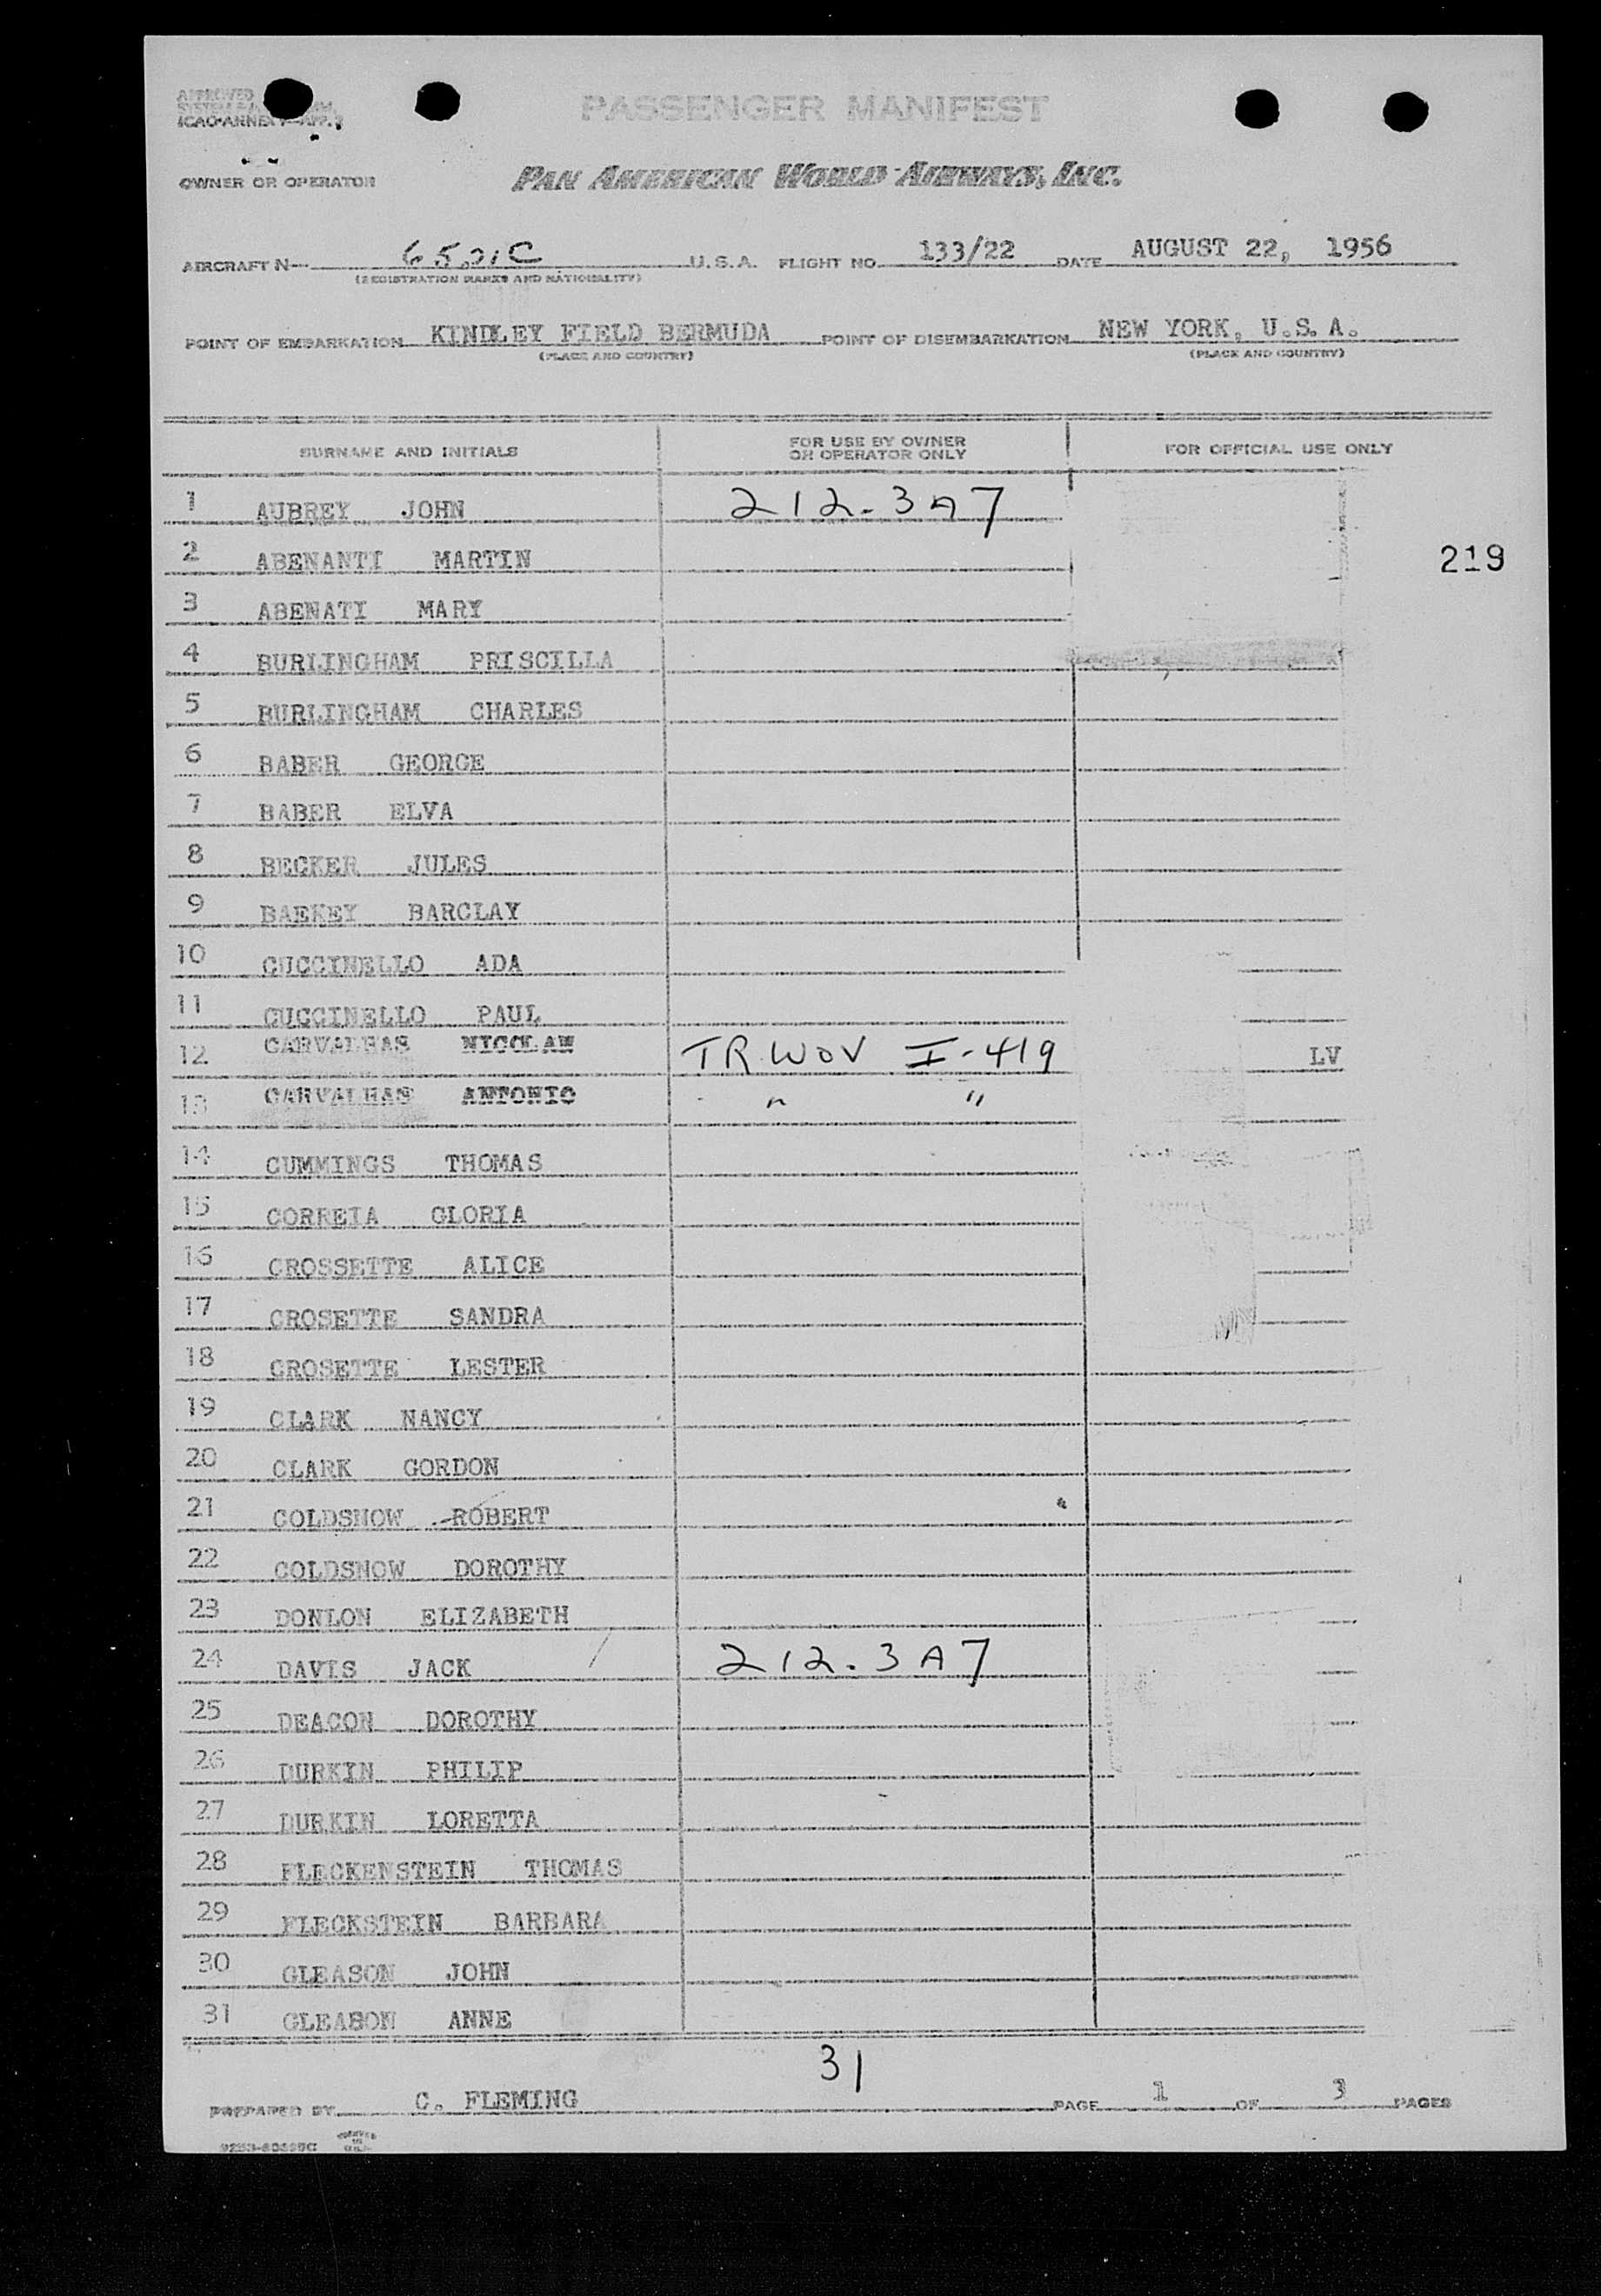 APPROVED
ICAO-ANNEX
PASSENGER MANIFEST
OWNER OR OPERATOR PAN AMERICAN WORLD AIRWAYS, INC.
AIRCRAFT N— U.S.A. FLIGHT NO. 133/22 DATE AUGUST 22, 1956
(REGISTRATION MARKS AND NATIONALITY)
POINT OF EMBARKATION KINDLEY FIELD BERMUDA POINT OF DISEMBARKATION NEW YORK, U.S.A.
(PLACE AND COUNTRY) (PLACE AND COUNTRY)
SURNAME AND INITIALS FOR USE BY OWNER OR OPERATOR ONLY FOR OFFICIAL USE ONLY
1 AUBREY JOHN 212.3A7
2 ABENANTI MARTIN 219
3 ABENATI MARY
4 BURLINGHAM PRISCILLA
5 BURLINGHAM CHARLES
6 BABER GEORGE
7 BABER ELVA
8 BECKER JULES
9 BAEKEY BARCLAY
10 CUCCINELLO ADA
11 CUCCINELLO PAUL
12 CARVALHAS TR WOV I-419 LV
13 CARVALHAS ANTONIO " "
14 CUMMINGS THOMAS
15 CORREIA GLORIA
16 CROSSETTE ALICE
17 CROSETTE SANDRA
18 CROSETTE LESTER
19 CLARK NANCY
20 CLARK GORDON
21 COLDSNOW ROBERT
22 COLDSNOW DOROTHY
23 DONLON ELIZABETH
24 DAVIS JACK 212.3A7
25 DEACON DOROTHY
26 DURKIN PHILIP
27 DURKIN LORETTA
28 FLECKENSTEIN THOMAS
29 FLECKSTEIN BARBARA
30 GLEASON JOHN
31 GLEASON ANNE
31
PREPARED BY C. FLEMING PAGE 1 OF 3 PAGES